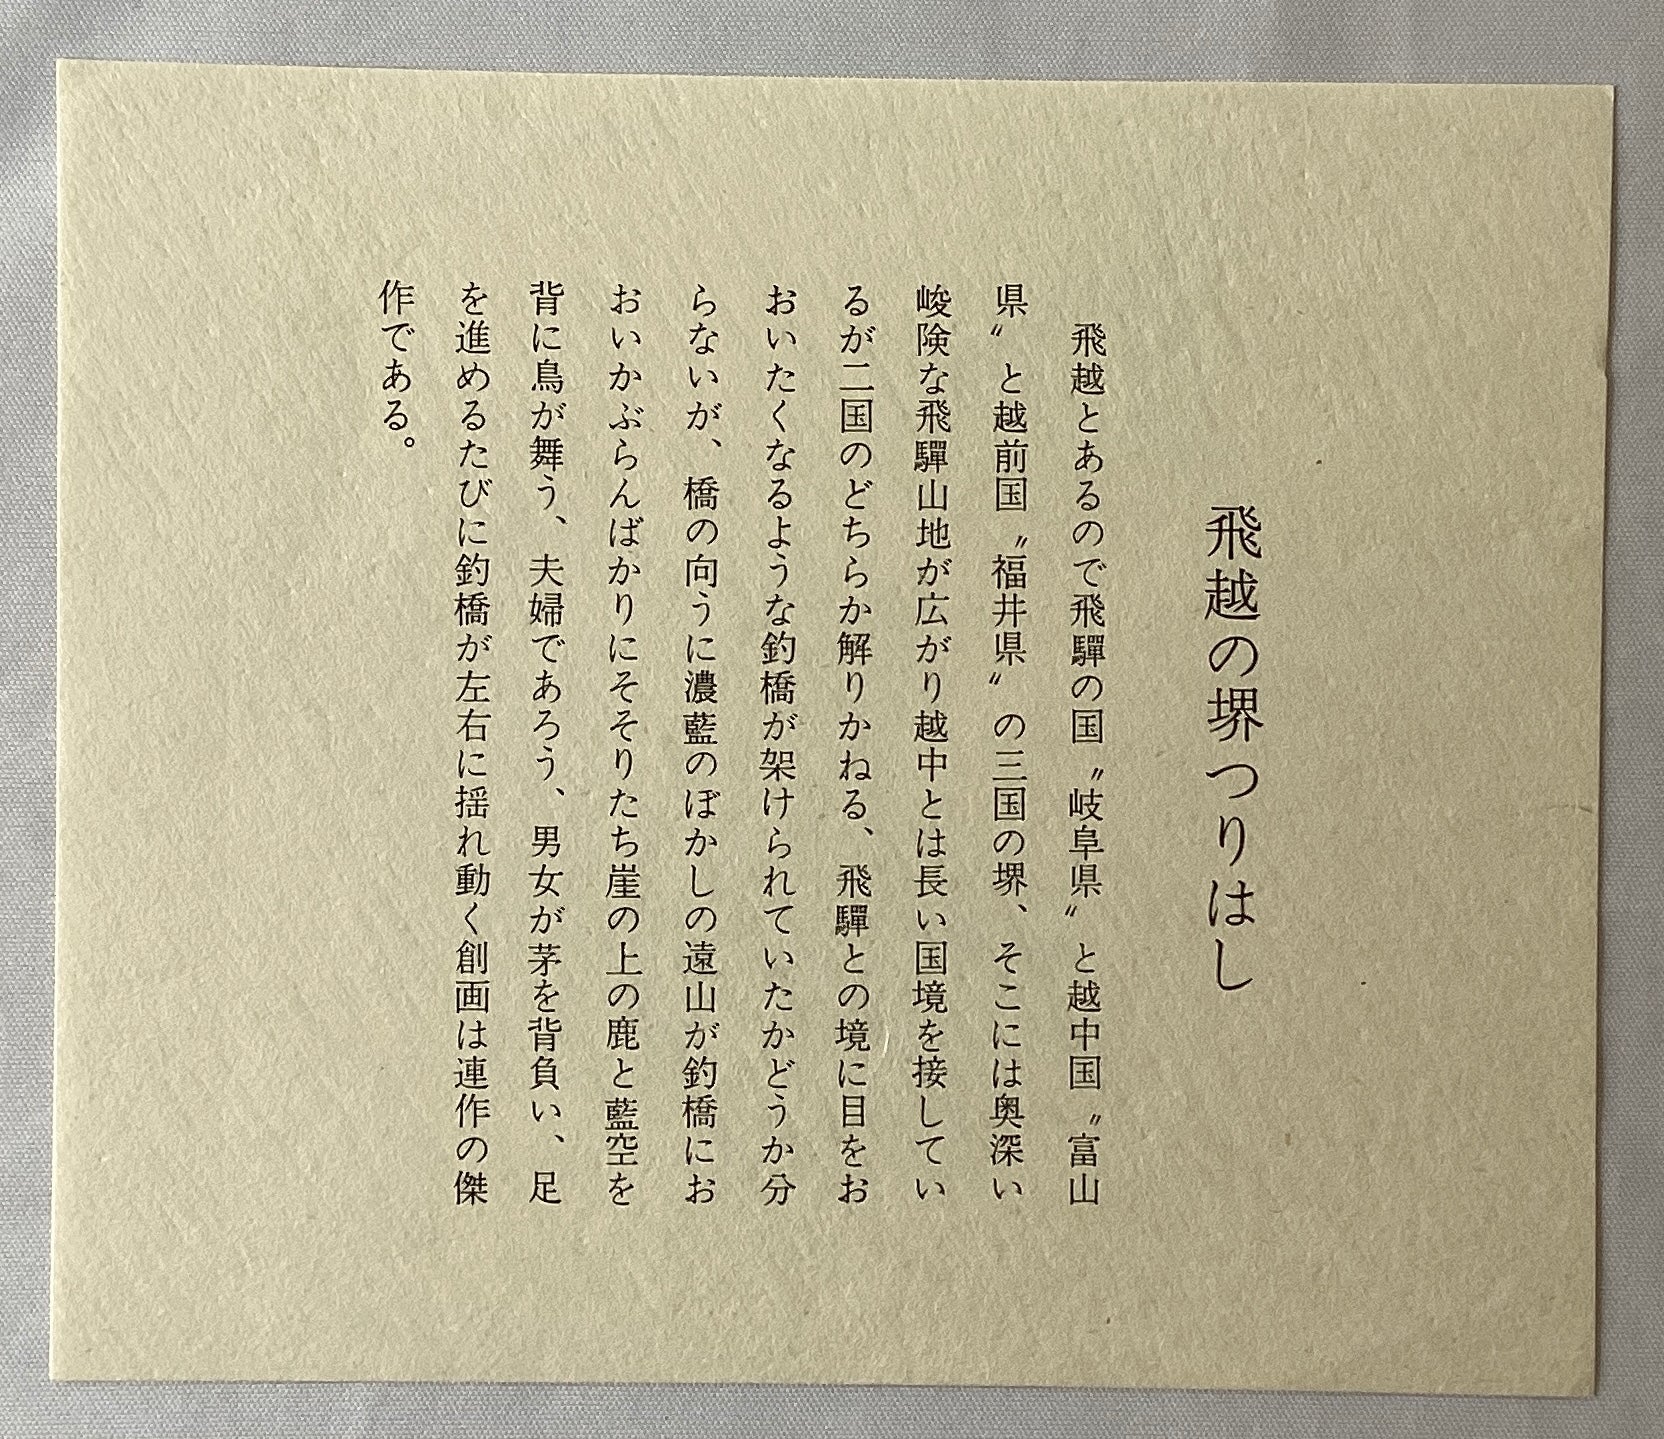 飛越の堺つりはし
飛越とあるので飛驒の国〝岐阜県〟と越中国〝富山
県〟と越前国〝福井県〟の三国の堺、そこには奥深い
峻険な飛驒山地が広がり越中とは長い国境を接してい
るが二国のどちらか解りかねる、飛驒との境に目をお
おいたくなるような釣橋が架けられていたかどうか分
らないが、橋の向うに濃藍のぼかしの遠山が釣橋にお
おいかぶらんばかりにそそりたち崖の上の鹿と藍空を
背に鳥が舞う、夫婦であろう、男女が茅を背負い、足
を進めるたびに釣橋が左右に揺れ動く創画は連作の傑
作である。